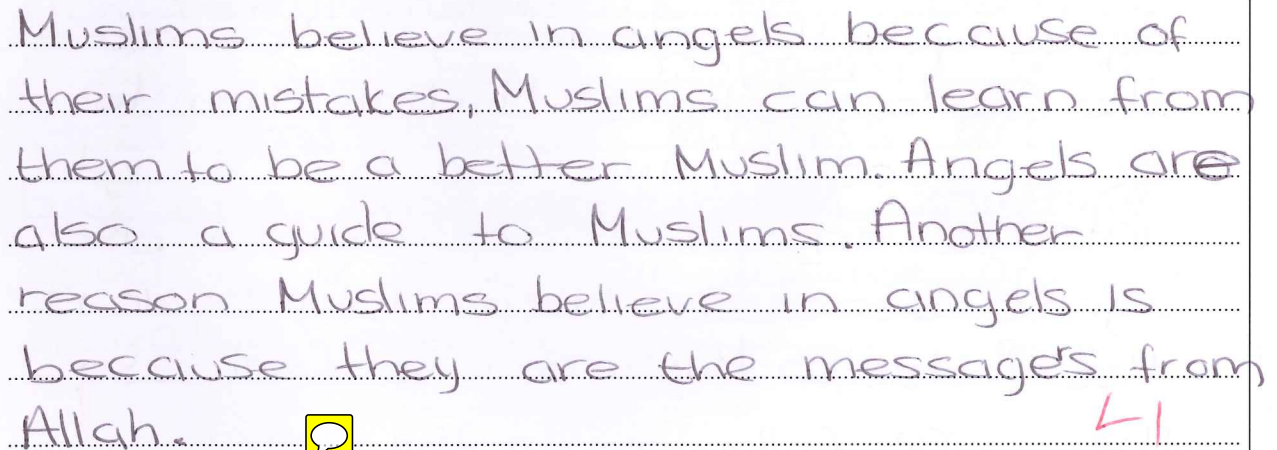 Muslims believe in angels because of
their mistakes, Muslims can learn from
them to be a better Muslim. Angels are
also a guide to Muslims. Another
reason Muslims believe in angels is
because they are the messagers from
Allah.
L1